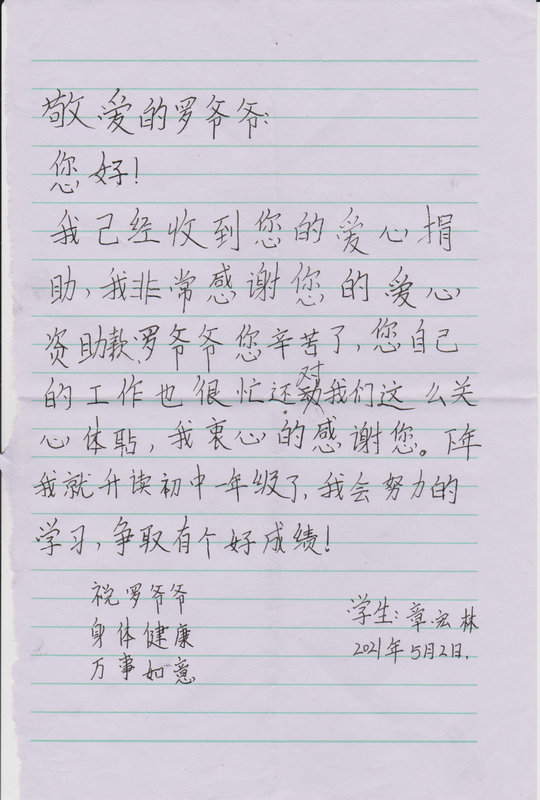 敬爱的罗爷爷:
您好!
我已经收到您的爱心捐
助,我非常感谢您的爱心
资助款,罗爷爷您辛苦了,您自己
的工作也很忙还对我们这么关
心体贴,我衷心的感谢您。下年
我就升读初中一年级了,我会努力的
学习,争取有个好成绩!
祝罗爷爷
身体健康
万事如意
学生:章宏林
2021年5月2日.